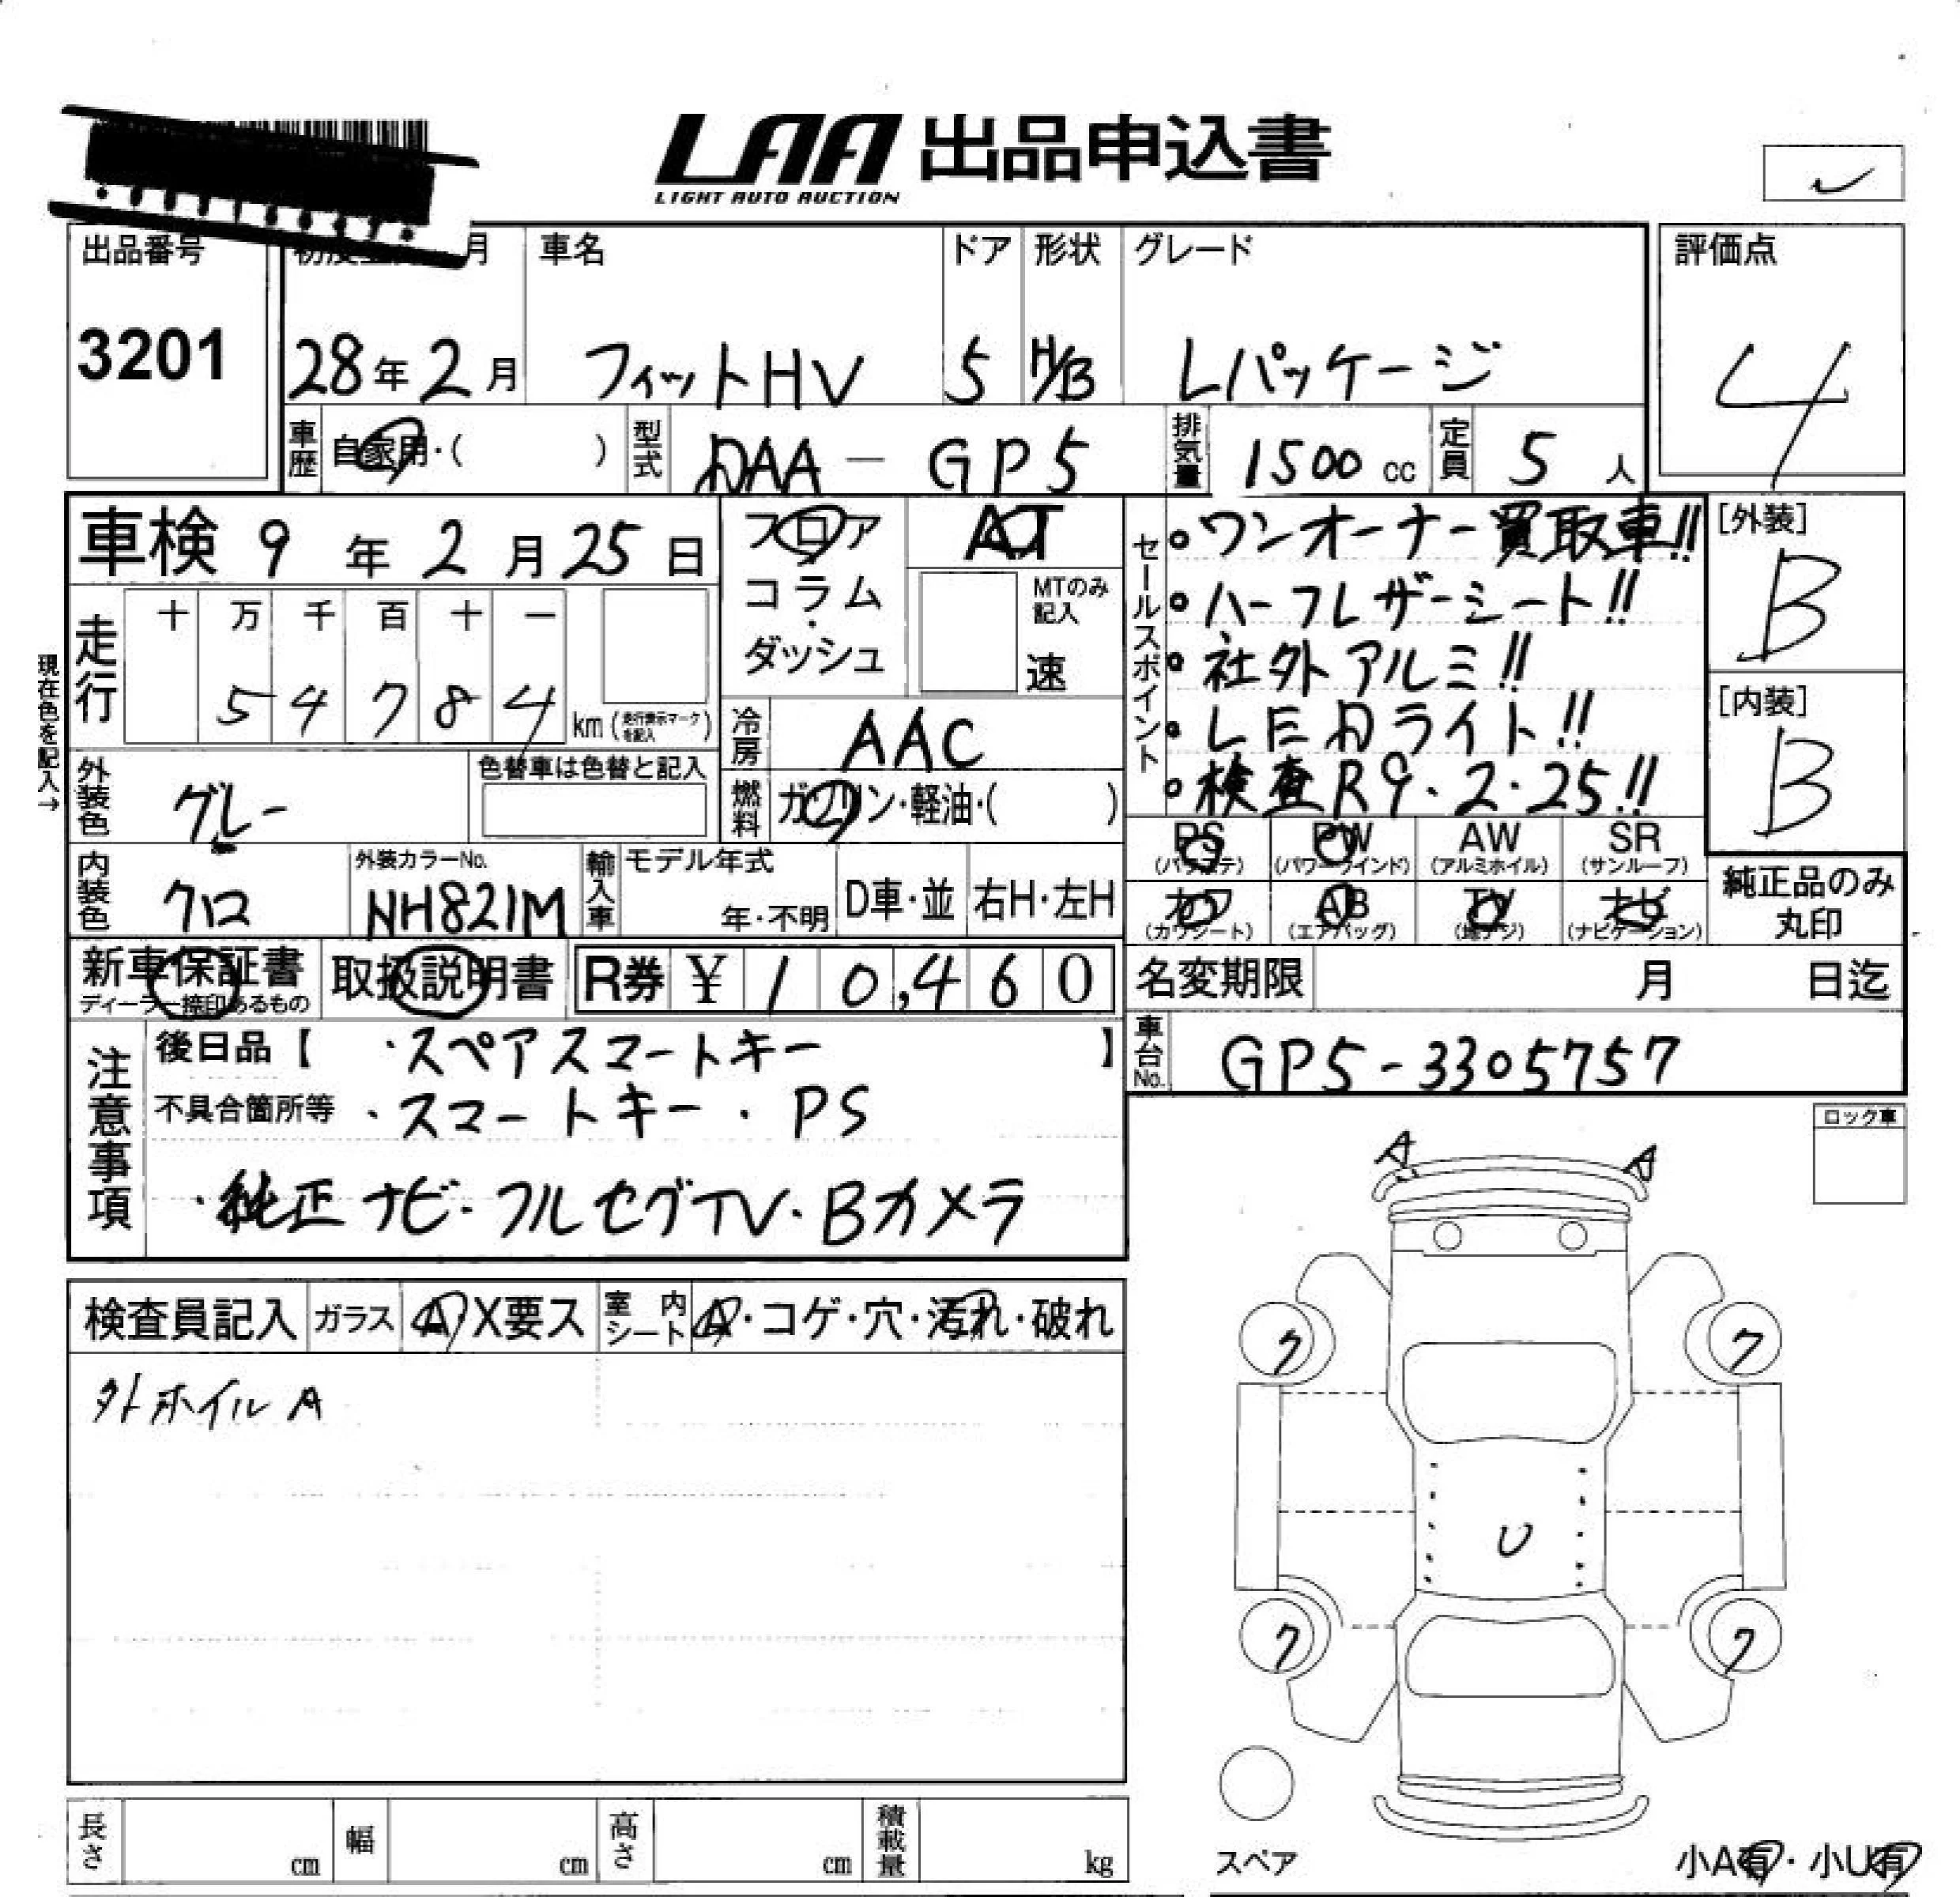 LAA 出品申込書
LIGHT AUTO AUCTION
出品番号
3201
月
28年2月
車名
フィットHV
ドア
5
形状
H/B
グレード
Lパッケージ
評価点
4
車歴 自家用・( )
型式 DAA-GP5
排気量 1500cc
定員 5人
車検 9年2月25日
フロア
コラム
・
ダッシュ
AT
MTのみ記入
速
セールスポイント
・ワンオーナー買取車!!
・ハーフレザーシート!!
・社外アルミ!!
・LEDライト!!
・検査R9.2.25!!
[外装]
B
[内装]
B
現在色を記入→
走行
十 万 千 百 十 一
5 4 7 8 4
km(走行表示マークを記入)
冷房 AAC
燃料 ガソリン・軽油・( )
外装色 グレー
色替車は色替と記入
内装色 クロ
外装カラーNo.
NH821M
輸入車 モデル年式
年・不明
D車・並
右H・左H
PS
(パワステ)
PW
(パワーウインド)
AW
(アルミホイル)
SR
(サンルーフ)
カワ
(カワシート)
AB
(エアバッグ)
TV
(地デジ)
ナビ
(ナビゲーション)
純正品のみ
丸印
新車保証書
ディーラー捺印あるもの
取扱説明書
R券 ¥10,460
名変期限 月 日迄
注意事項
後日品【 ・スペアスマートキー 】
不具合箇所等 ・スマートキー・PS
・純正ナビ・フルセグTV・Bカメラ
車台No. GP5-3305757
ロック車
A A
検査員記入
ガラス A X要ス
室内シート A・コゲ・穴・汚れ・破れ
外ホイルA
ク ク
U
ク ク
スペア
小A有・小U有
長さ cm
幅 cm
高さ cm
積載量 kg